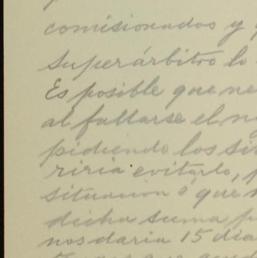 comisionados y
Superárbitro lo
Es posible que ne
al fallarse el
pidiendo los
riria evitarlo, p
situacion o que
dicha suma p
nos daria 15 dia